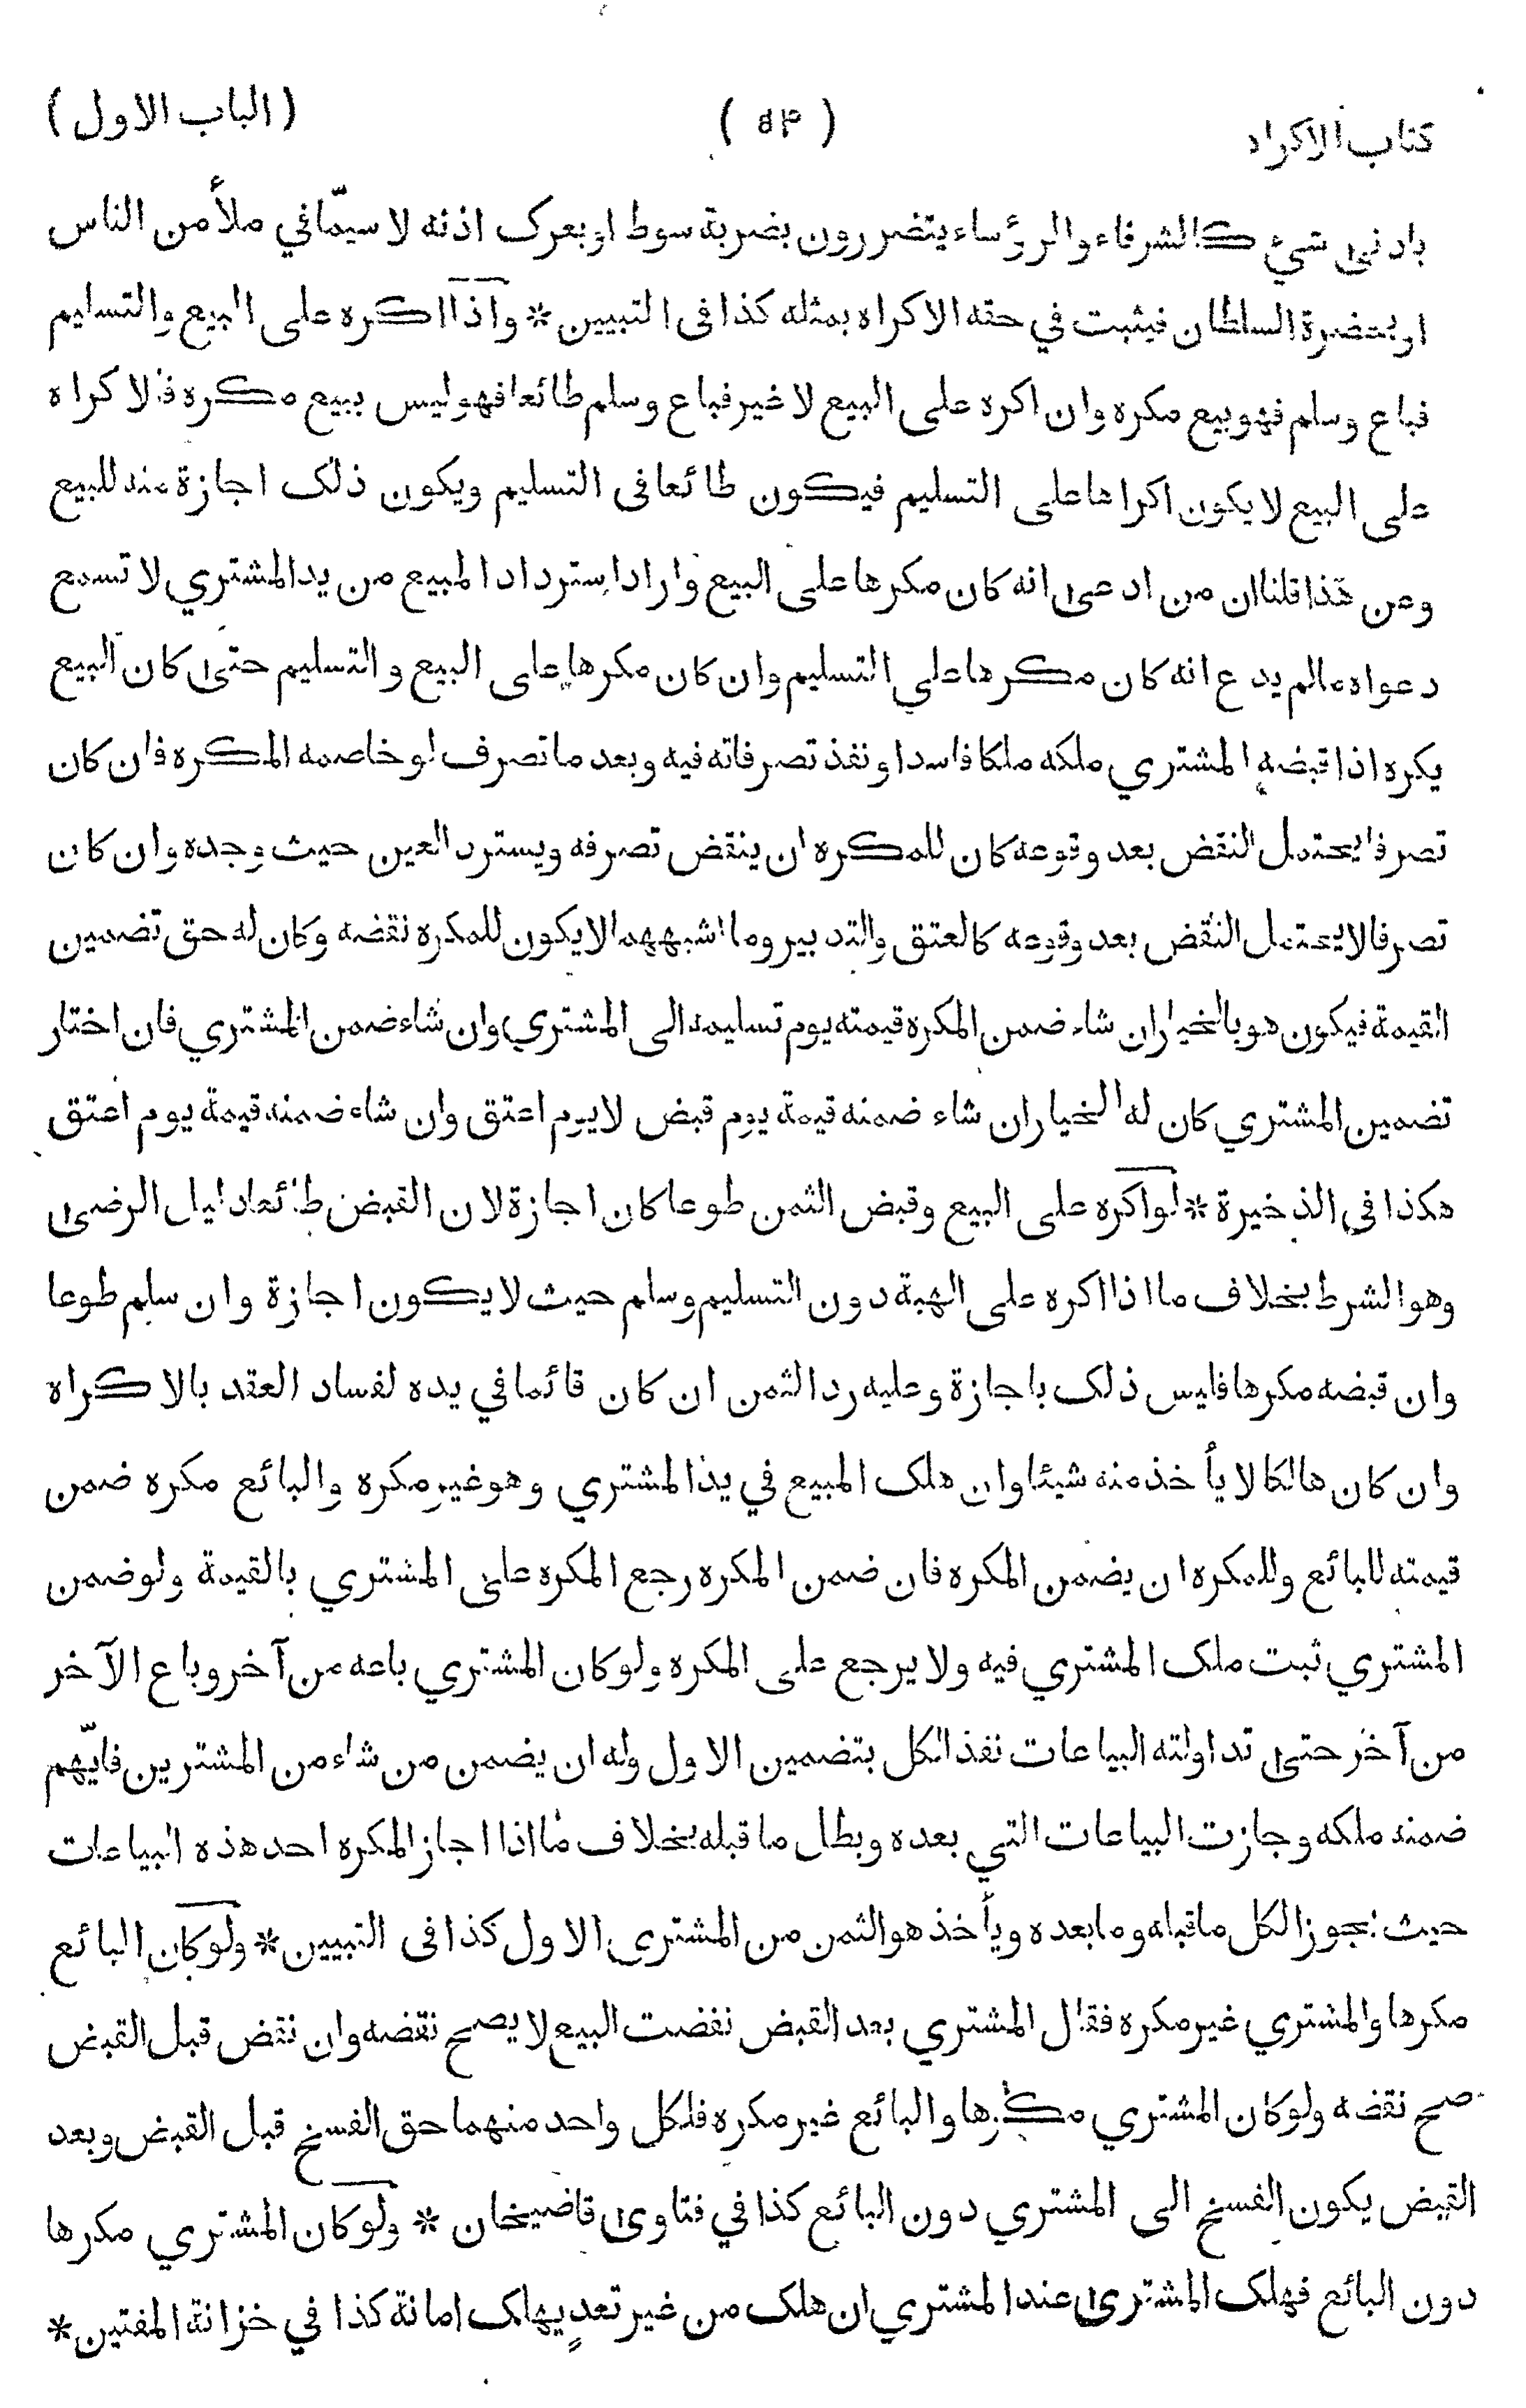 كتاب الاكراه ( ٥٣ ) ( الباب الاول )
بادنى شيء كالشرفاء والرؤساء يتضررون بضربة سوط او بعرك اذنه لا سيمّا في ملأ من الناس
او بحضرة السلطان فيثبت في حقه الاكراه بمثله كذا فى التبيين * واذا اكره على البيع والتسليم
فباع وسلم فهو بيع مكره وان اكره على البيع لا غير فباع وسلم طائعا فهو ليس ببيع مكره فالاكراه
على البيع لا يكون اكراها على التسليم فيكون طائعا فى التسليم ويكون ذلك اجازة منه للبيع
وعن هذا قلنا ان من ادعى انه كان مكرها على البيع واراد استرداد المبيع من يد المشتري لا تسمع
دعواه ما لم يدع انه كان مكرها على التسليم وان كان مكرها على البيع والتسليم حتى كان البيع
يكره اذا قبضه المشتري ملكه ملكا فاسدا ونفذ تصرفاته فيه وبعد ما تصرف لو خاصمه المكره فان كان
تصرفا يحتمل النقض بعد وقوعه كان للمكره ان ينقض تصرفه ويسترد العين حيث وجده وان كان
تصرفا لا يحتمل النقض بعد وقوعه كالعتق والتدبير وما اشبههما لا يكون للمكره نقضه وكان له حق تضمين
القيمة فيكون هو بالخيار ان شاء ضمن المكره قيمته يوم تسليمه الى المشتري وان شاء ضمن المشتري فان اختار
تضمين المشتري كان له الخيار ان شاء ضمنه قيمة يوم قبض لا يوم اعتق وان شاء ضمنه قيمة يوم اعتق
هكذا في الذخيرة * لو اكره على البيع وقبض الثمن طوعا كان اجازة لان القبض طائعا دليل الرضى
وهو الشرط بخلاف ما اذا اكره على الهبة دون التسليم وسلم حيث لا يكون اجازة وان سلم طوعا
وان قبضه مكرها فليس ذلك باجازة وعليه رد الثمن ان كان قائما في يده لفساد العقد بالاكراه
وان كان هالكا لا يأخذ منه شيئا وان هلك المبيع في يد المشتري وهو غير مكره والبائع مكره ضمن
قيمته للبائع وللمكره ان يضمن المكره فان ضمن المكره رجع المكره على المشتري بالقيمة ولو ضمن
المشتري ثبت ملك المشتري فيه ولا يرجع على المكره ولو كان المشتري باعه من آخر وباع الآخر
من آخر حتى تداولته البياعات نفذ الكل بتضمين الاول وله ان يضمن من شاء من المشترين فايّهم
ضمنه ملكه وجازت البياعات التي بعده وبطل ما قبله بخلاف ما اذا اجاز المكره احد هذه البياعات
حيث يجوز الكل ما قبله وما بعده ويأخذ هو الثمن من المشترى الاول كذا فى التبيين * ولو كان البائع
مكرها والمشتري غير مكره فقال المشتري بعد القبض نقضت البيع لا يصح نقضه وان نقض قبل القبض
صح نقضه ولو كان المشتري مكرها والبائع غير مكره فلكل واحد منهما حق الفسخ قبل القبض وبعد
القبض يكون الفسخ الى المشتري دون البائع كذا في فتاوى قاضيخان * ولو كان المشتري مكرها
دون البائع فهلك المشترى عند المشتري ان هلك من غير تعدٍ يهلك امانة كذا في خزانة المفتين *